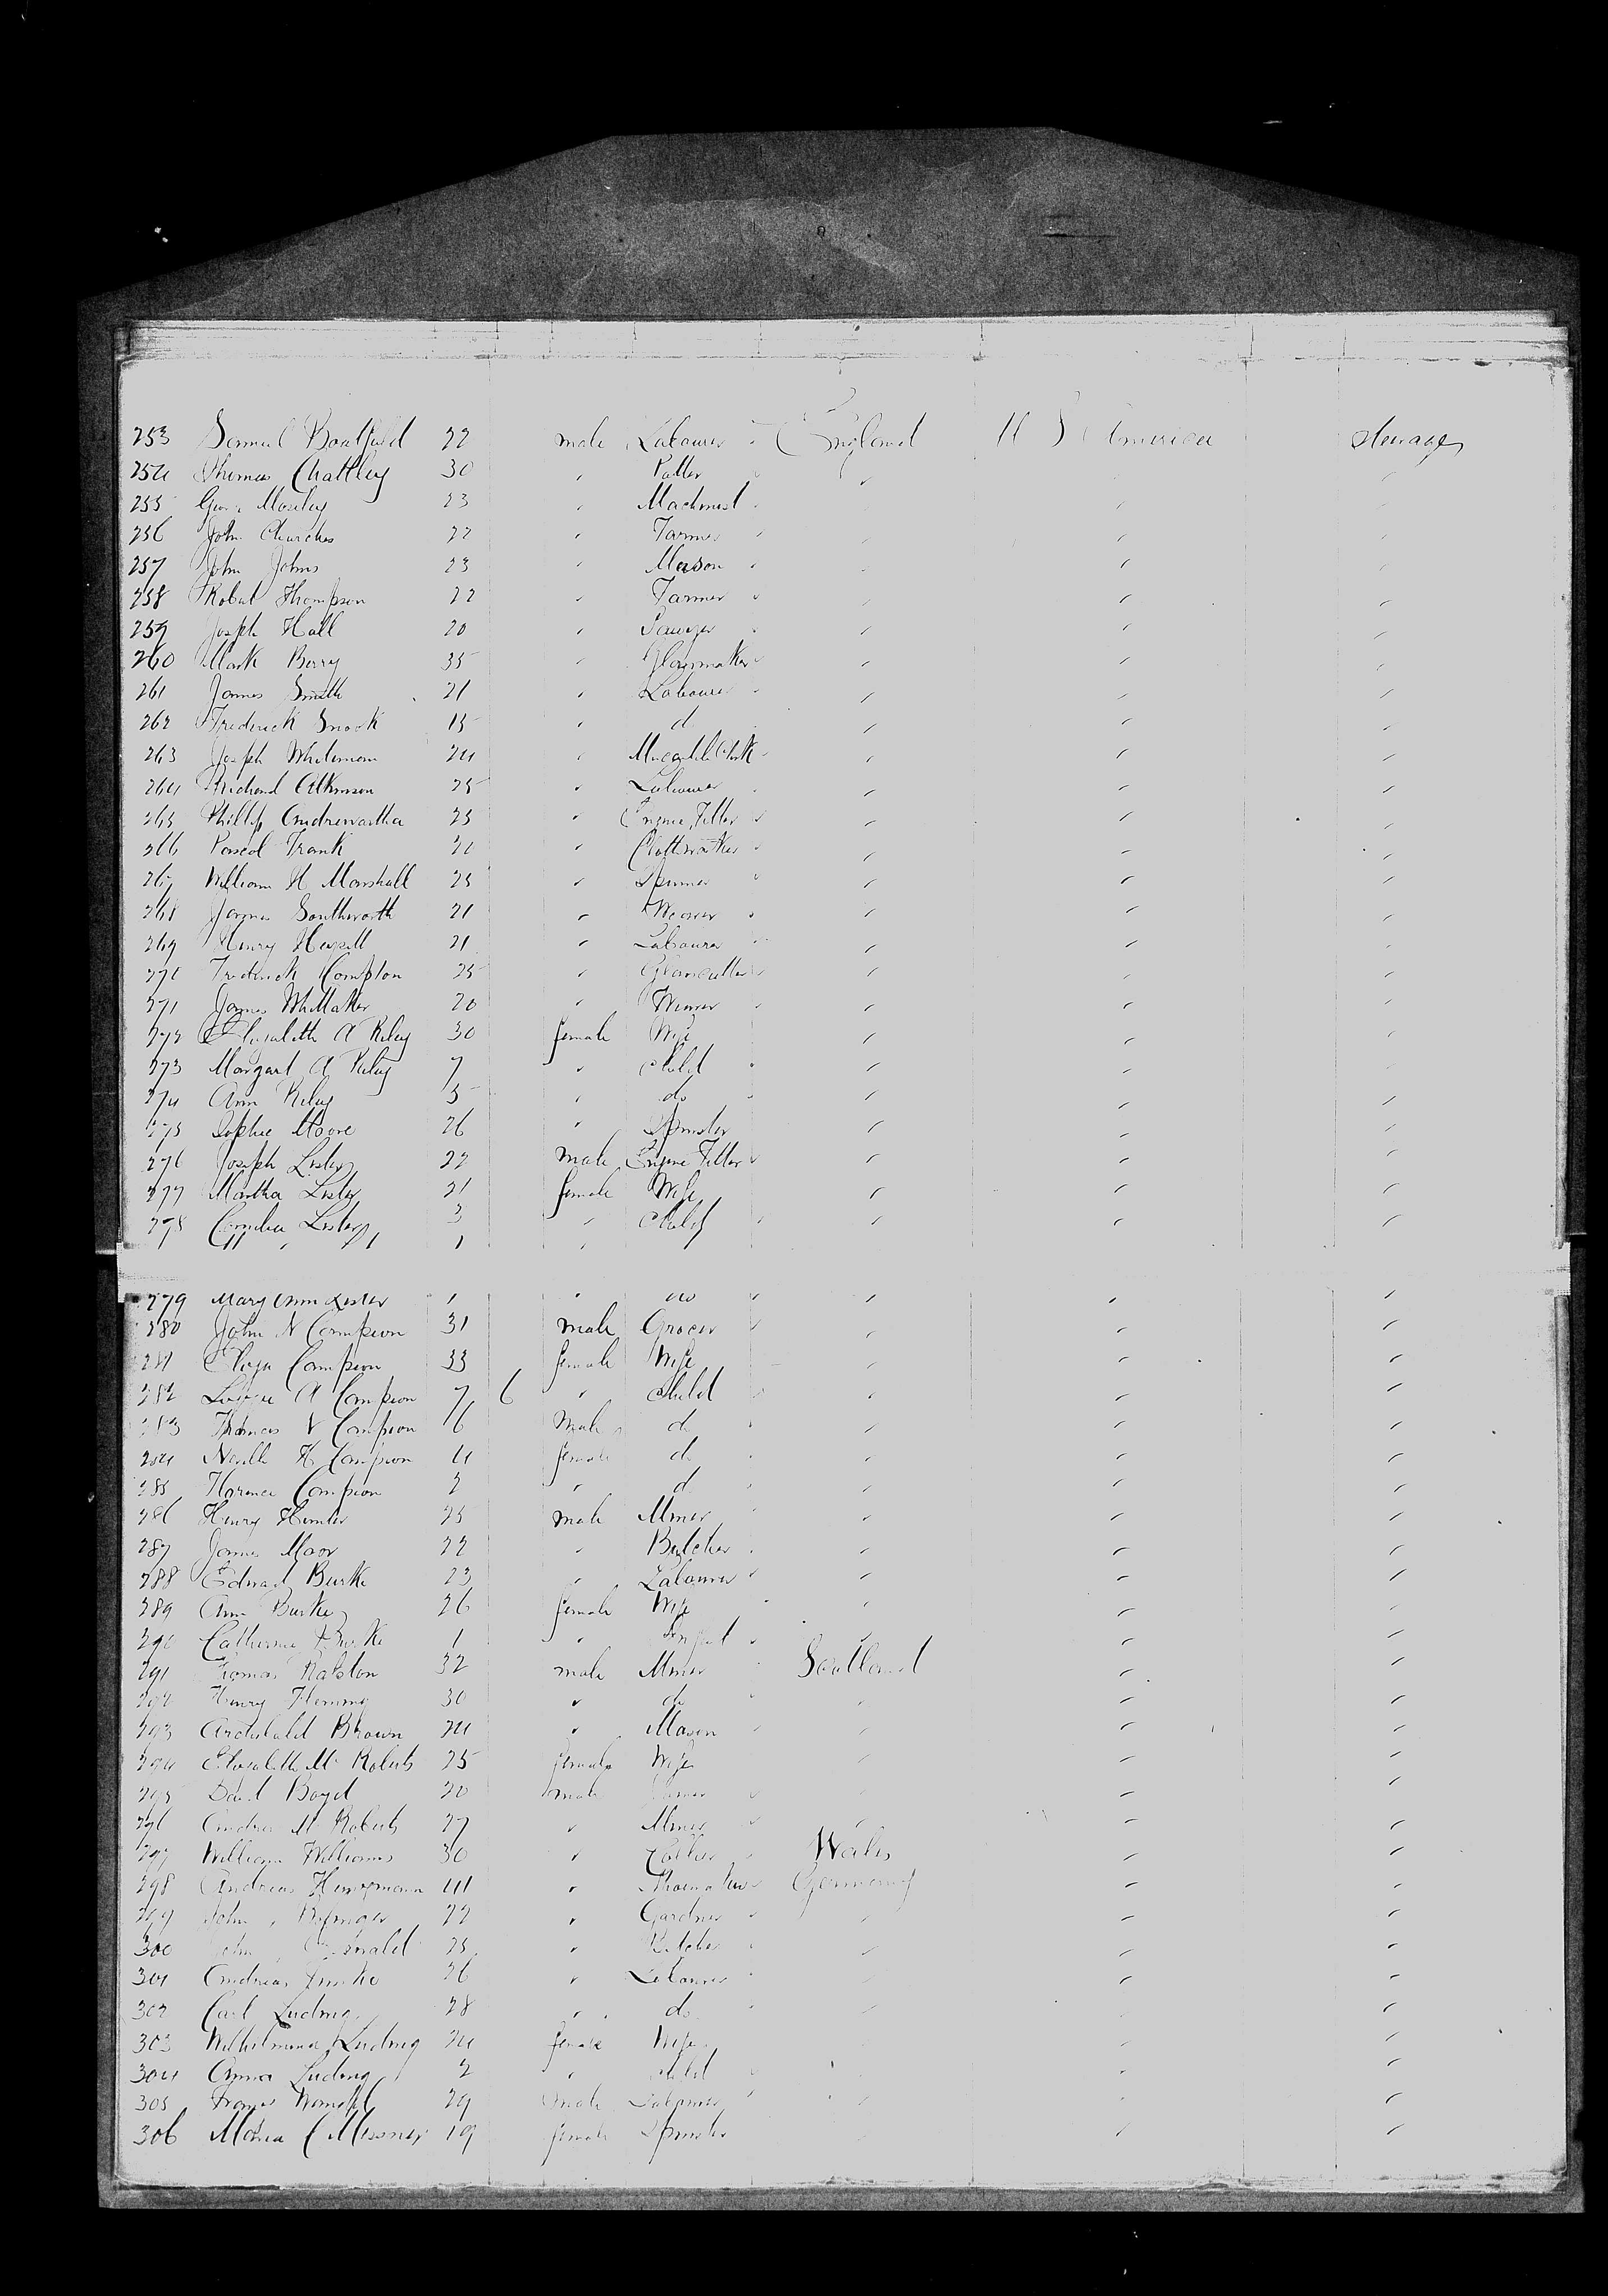 253 Samuel Boatfield 22 male Labourer England U S America Steerage
254 Thomas Chattley 30 " Potter " " "
255 Geo. Moseley 23 " Machinist " " "
256 John Churches 22 " Farmer " " "
257 John Johns 23 " Mason " " "
258 Robert Thompson 22 " Farmer " " "
259 Joseph Hall 20 " Sawyer " " "
260 Mark Berry 35 " Glassmaker " " "
261 James Smith 21 " Labourer " " "
262 Frederick Snook 15 " do " " "
263 Joseph Whiteman 24 " Clerk " " "
264 Richard Atkinson 25 " Labourer " " "
265 Phillip Andrewartha 25 " Engine Fitter " " "
266 Frank " Clothworker " " "
267 William H Marshall 25 " Spinner " " "
268 James Southworth 21 " Weaver " " "
269 Henry 21 " Labourer " " "
270 Frederick Compton 25 " Glasscutter " " "
271 James Whittaker 20 " Weaver " " "
272 Elizabeth A Riley 30 female Wife " " "
273 Margaret A Riley 7 " child " " "
274 Ann Riley 5 " do " " "
275 Sophie Moore 26 " Spinster " " "
276 Joseph Lister 22 male Engine Fitter " " "
277 Martha Lister 21 female Wife " " "
278 Lister 3 " Child " " "
1 "
279 Mary Ann Lister 1 " do " " "
280 John N Compion 31 male Grocer " " "
281 Eliza Compion 33 female Wife " " "
282 Lizzie A Compion 7 6 " child " " "
283 Thomas V Compion 6 Male do " " "
284 H Compion 4 female do " " "
285 Florence Compion 2 " do " " "
286 Henry 25 male Miner " " "
287 James Moor 22 " Butcher " " "
288 Edward Burke 23 " Labourer " " "
289 Ann Burke 26 female Wife " " "
290 Catherine Burke 1 " Infant " " "
291 Thomas Ralston 32 male Miner Scotland " "
292 Henry Fleming 30 " do " " "
293 Archibald Brown 24 " Mason " " "
294 Elizabeth Mc Roberts 25 female Wife " " "
295 David Boyd 20 male " " "
296 Andrew Mc Roberts 27 " Miner " " "
297 William Williams 30 " Collier Wales " "
298 Andreas 41 " Shoemaker Germany " "
299 John 22 " Gardner " " "
300 John 25 " Butcher " " "
301 Andreas 26 " Labourer " " "
302 Carl Ludwig 28 " do " " "
303 Wilhelmina Ludwig 24 female Wife " " "
304 Anna Ludwig 2 " child " " "
305 29 male Labourer " " "
306 Maria C Messner 19 female Spinster " " "